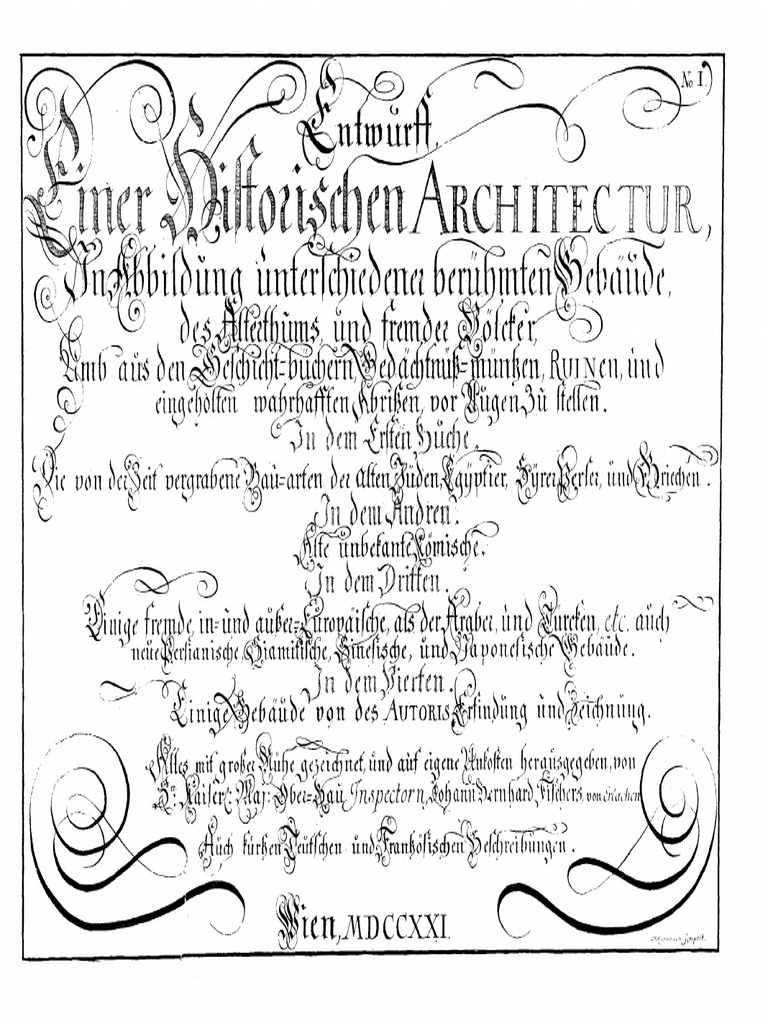 No. I.
Entwurff,
Einer Historischen ARCHITECTUR,
In Abbildung unterschiedener berühmten Gebäude,
des Alterthums, und fremder Völcker,
Umb aus den Geschicht-büchern, Gedächtnüß-müntzen, RUINEN, und
eingeholten wahrhafften Abrißen, vor Augen zu stellen.
In dem Ersten Buche.
Die von der Zeit vergrabene Bau-arten der alten Jüden, Egyptier, Syrer, Perser, und Griechen.
In dem Andren.
Alte unbekante Römische.
In dem Dritten.
Einige fremde, in- und außer-Europäische, als der Araber, und Türcken, etc. auch
neue Persianische, Siamitische, Sinesische, und Japonesische Gebäude.
In dem Vierten.
Einige Gebäude von des AUTORIS Erfindung und Zeichnung.
Alles mit großer Mühe gezeichnet, und auf eigene Unkosten herausgegeben, von
Sr. Kaiserl: Maj: Ober-Bau Inspectorn, Johann Bernhard Fischers, von Erlachen
Auch kurtzen Teutschen und Frantzösischen Beschreibungen.
Wien, MDCCXXI.